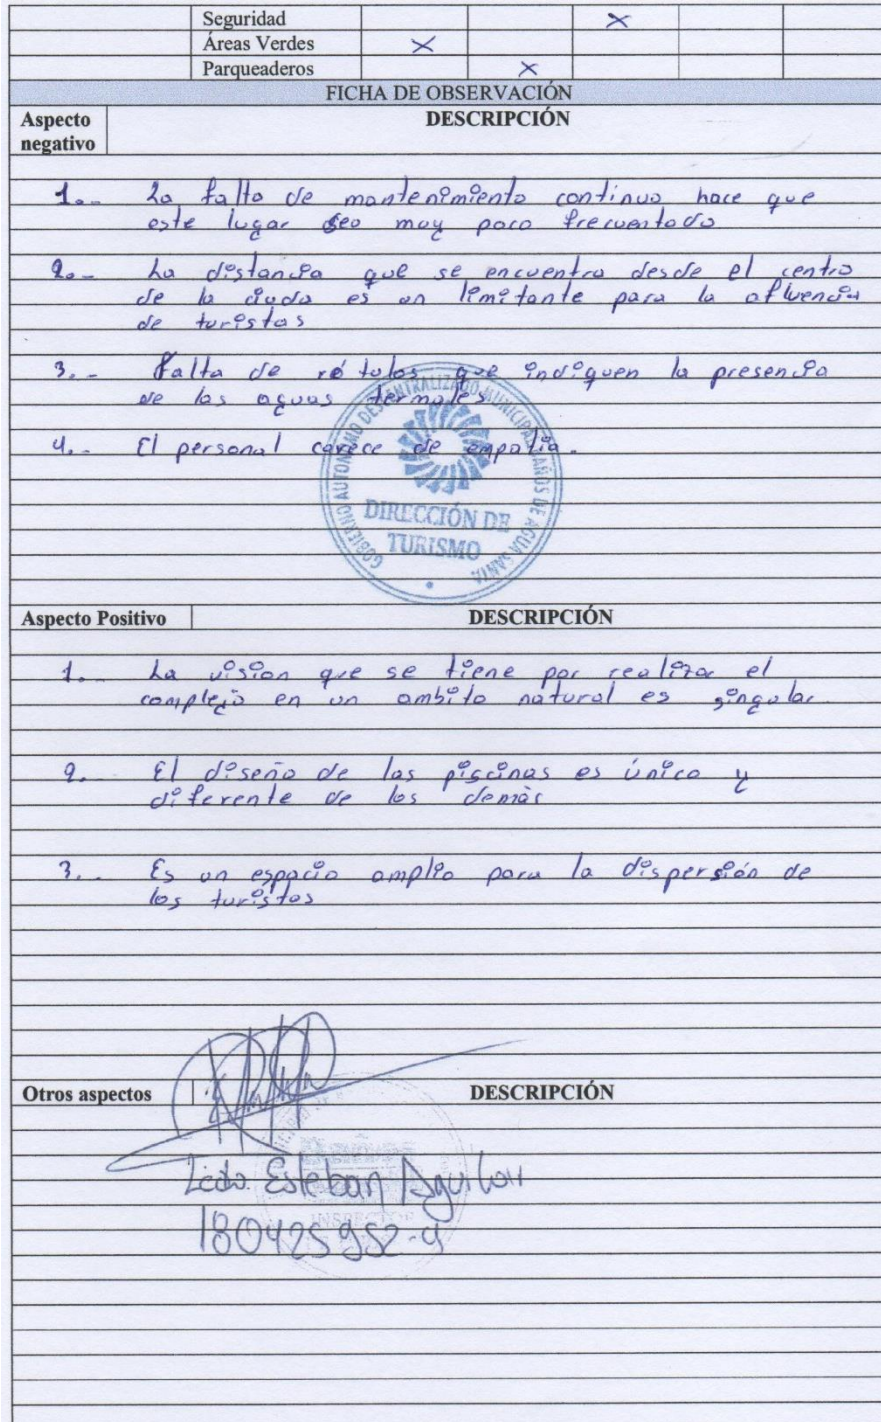 Seguridad ×
Áreas Verdes ×
Parqueaderos ×
FICHA DE OBSERVACIÓN
Aspecto negativo DESCRIPCIÓN
1.- La falta de mantenimiento continuo hace que
este lugar sea muy poco frecuentado
2.- La distancia que se encuentra desde el centro
de la ciuda es un limitante para la afluencia
de turistas
3.- Falta de rótulos que indiquen la presencia
de las aguas termales
4.- El personal carece de empatía.
GOBIERNO AUTÓNOMO DESCENTRALIZADO MUNICIPAL BAÑOS DE AGUA SANTA
DIRECCIÓN DE
TURISMO
Aspecto Positivo DESCRIPCIÓN
1.- La vision que se tiene por realizar el
complejo en un ambito natural es singular
2.- El diseño de las piscinas es único y
diferente de los demàs
3.- Es un espacio amplio para la dispersión de
los turistas
Otros aspectos DESCRIPCIÓN
Lcdo. Esteban Aguilar
INSPECTOR
180425952-4